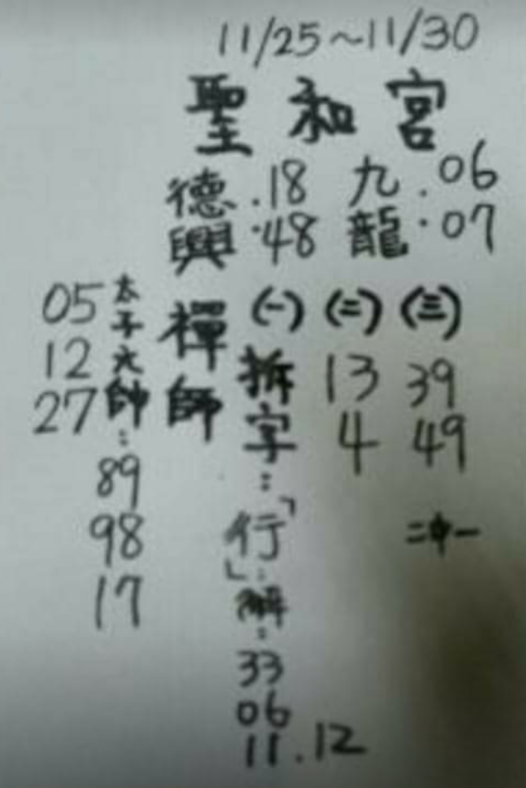 11/25~11/30
聖和宮
德興.18.48
九龍.06.07
禪師
(一)拆字:「行」:解:33
06
11.12
(二)13
4
(三)39
49
二中一
太子元帥:89
98
17
05
12
27